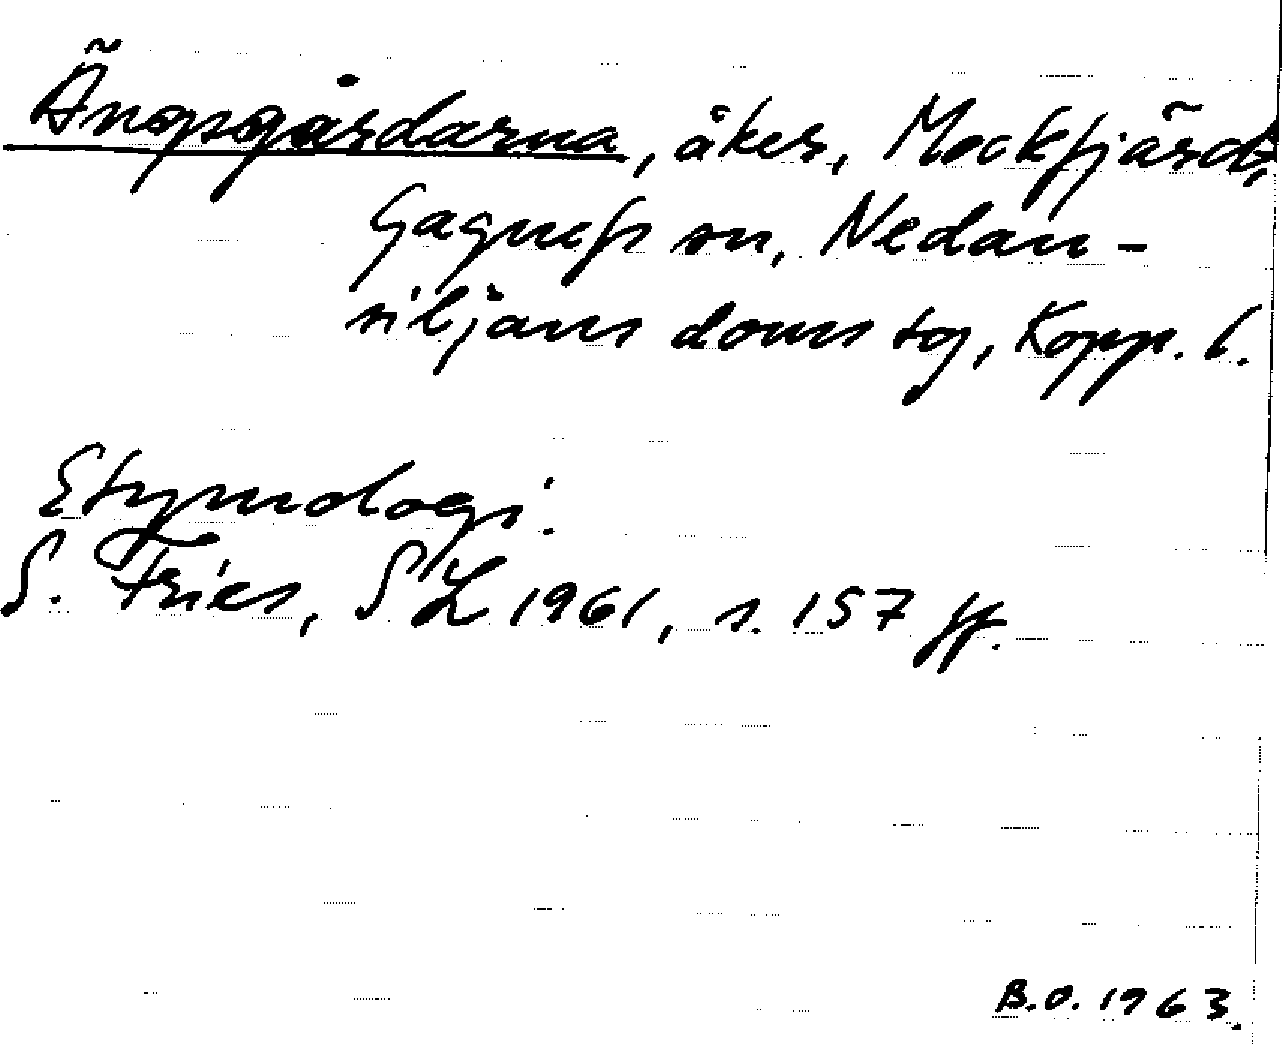 Ängsgårdarna, åker, Mockfjärd,
Gagnefs sn, Nedan-
siljans doms tg, Kopp. l.
Etymologi:
S. Fries, SL 1961, s. 157 ff.
B.O. 1963.